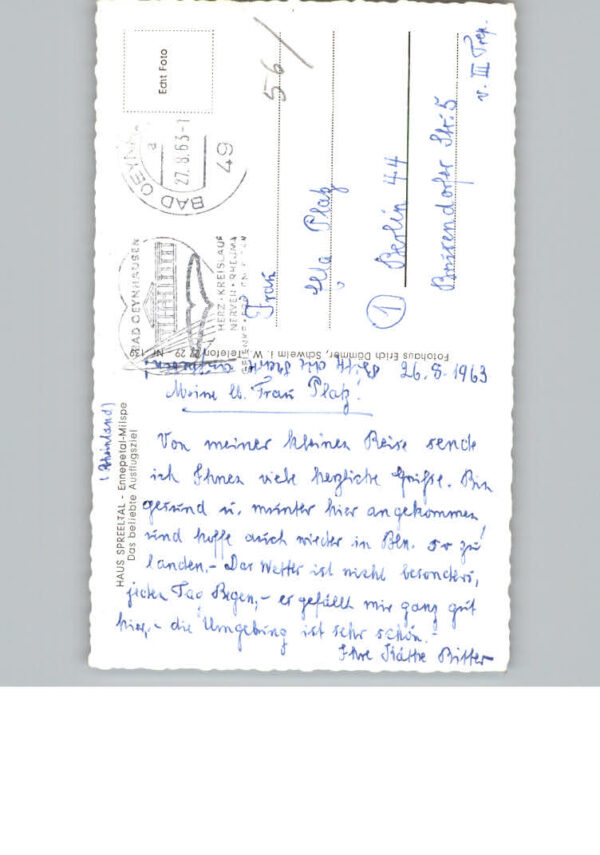 Echt Foto
56/
BAD OEYNHAUSEN
a
27.8.63-1
49
BAD OEYNHAUSEN
HERZ · KREISLAUF
NERVEN · RHEUMA
Frau
Ella Platz
① Berlin 44
Str. 5
v. III Trep.
Fotohaus Erich Dömmer, Schwelm i. W., Telefon 27 29 - Nr. 139
HAUS SPREELTAL - Ennepetal-Milspe
Das beliebte Ausflugsziel
(Rheinland)
26.8.1963
Meine lb. Frau Platz!
Von meiner kleinen Reise sende
ich Ihnen viele herzliche Grüße. Bin
gesund u. munter hier angekommen
und hoffe auch wieder in Bln. so zu
landen.- Das Wetter ist nicht besonders,
jeden Tag Regen,- es gefällt mir ganz gut
hier,- die Umgebung ist sehr schön.-
Ihre Käthe Ritter